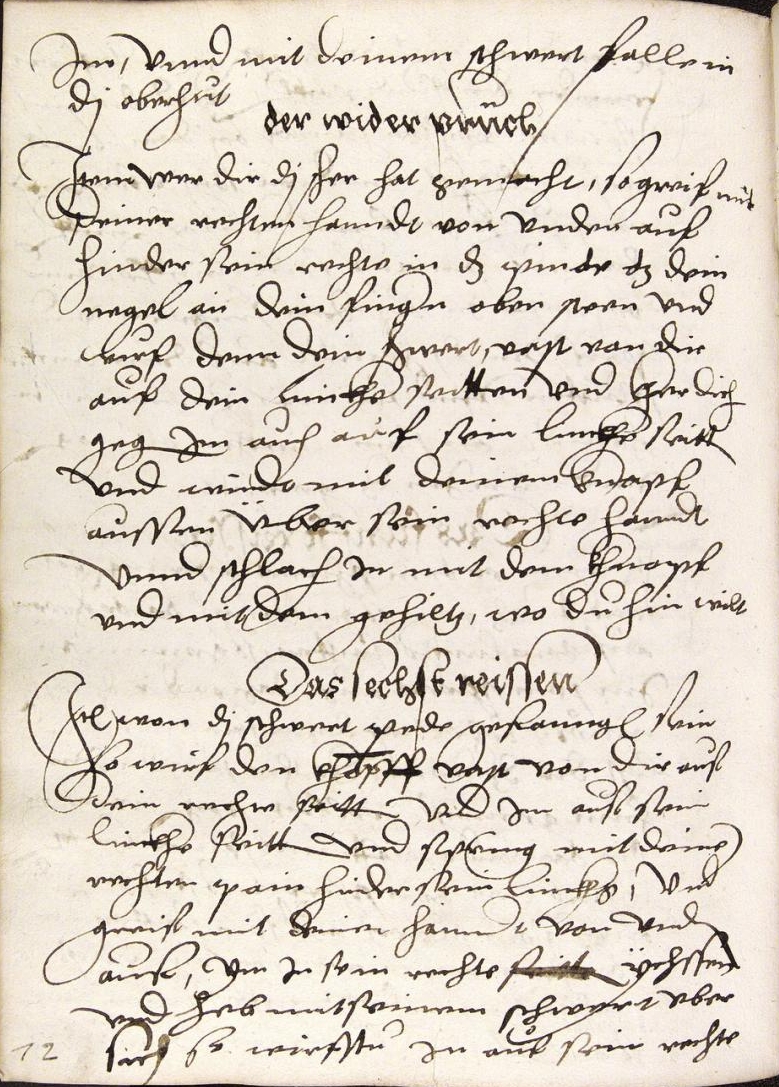 Im, Vnnd mit deinem schwert falle in
dj oberhut
der wider pruch
Item wer dir dj sher hat gemacht, so greif mit
deiner rechten hanndt von vnden auf
hinder sein rechte in dz pinde dz dein
negel an dein fingn oben steen vnd
wirf denn dein swert vast von dir
auf dein linckhe seitten vnd ker dich
geg Im auch auf sein linckhe seitt
vnd winde mit deinem knopf
aussen über sein rechte handt
Vnnd schlach In mit dem khnopf
vnd mit dem gehiltz, wo du hin wilt
Das sechst reissen
Itl wen dj schwert pede gefanngl sein
so wirf den khopff vast von dir auf
dein rechte seitt vnd Im auf sein
linckhe seitt vnd spring mit deine
rechten pain hinder sein linckhs, Vnd
greif mit deiner hanndt von vnd
auf, Im In sein rechte ychssen
vnd heb mit seinem schwert vber
sich so wirfstu In auf sein rechte
12